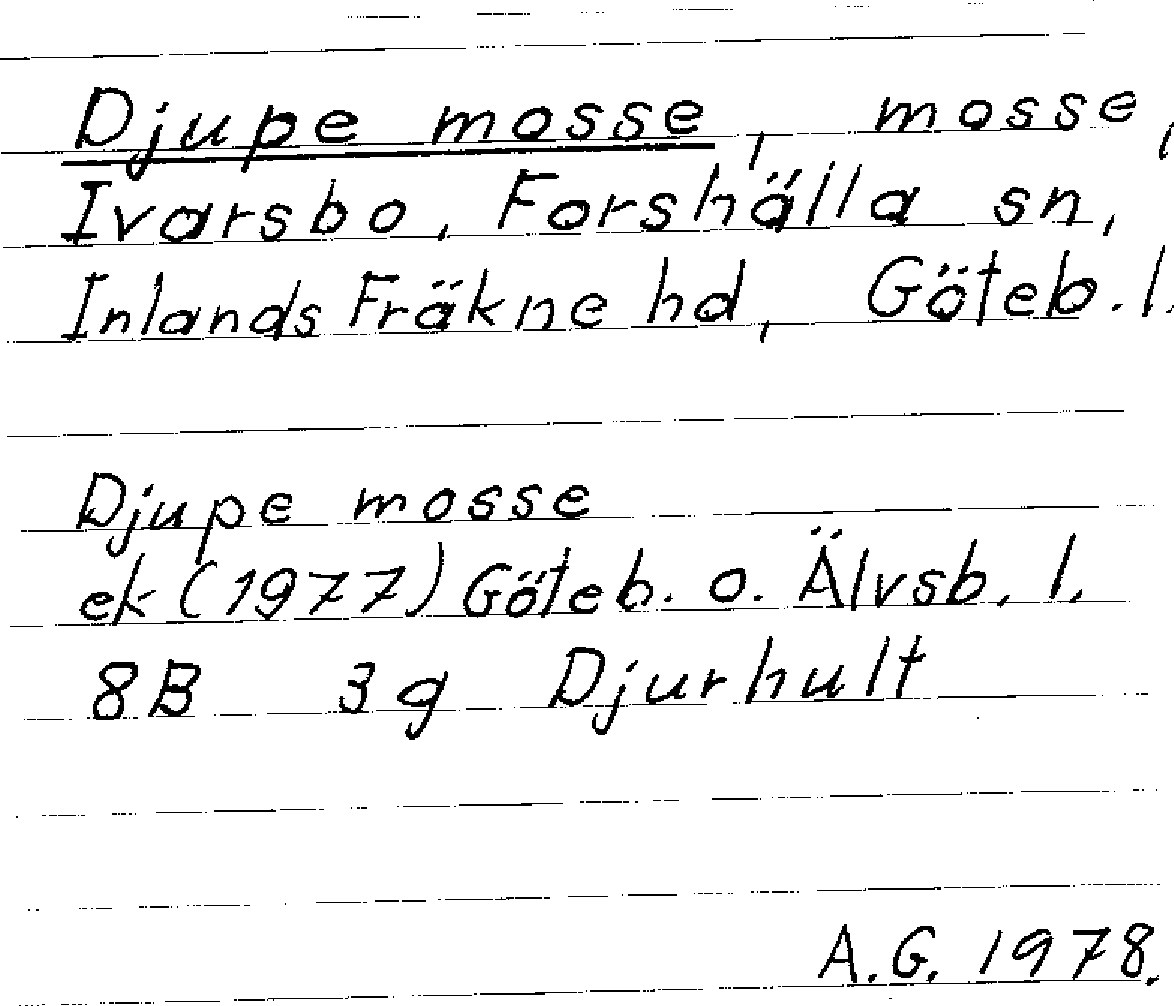 Djupe mosse, mosse,
Ivarsbo, Forshälla sn,
Inlands Fräkne hd, Göteb. l.
Djupe mosse
ek (1977) Göteb. o. Älvsb. l.
8B 3g Djurhult
A.G. 1978.